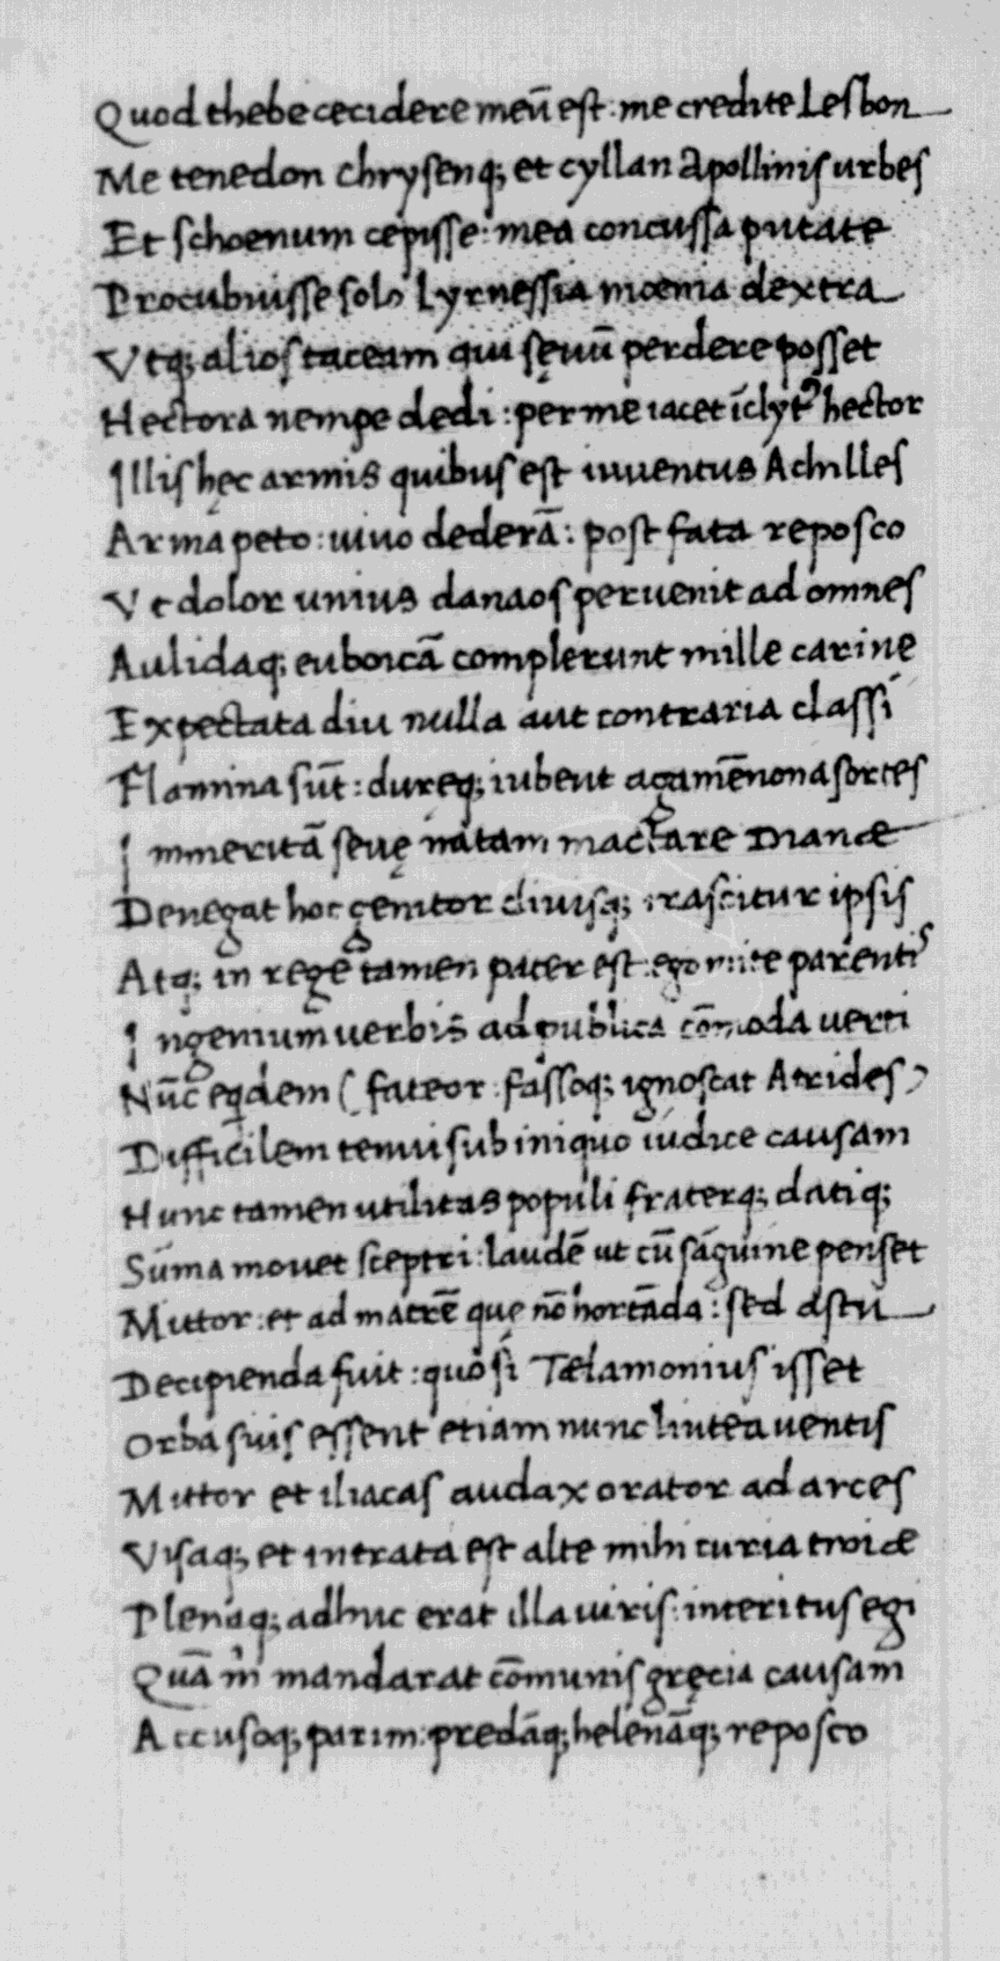 Quod thebe cecidere meū est : me credite Lesbon
Me tenedon chrysenq; et cyllan Apollinis urbes
Et schoenum cepisse : mea concussa putate
Procubuisse solo Lyrnessia moenia dextra
Vtq; alios taceam qui sęuū perdere posset
Hectora nempe dedi : per me iacet īclytꝰ hector
Illis hęc armis quibus est inuentus Achilles
Arma peto : uiuo dederā : post fata reposco
Vt dolor unius danaos peruenit ad omnes
Aulidaq; euboicā complerunt mille carine
Expectata diu nulla aut contraria classi
Flamina sūt : dureq; iubent agamēnona sortes
Immeritā seuę natam mactare Dianæ
Denegat hoc genitor diuisq; irascitur ipsis
Atq; in rege tamen pater est : ego mite parentis
Ingenium uerbis ad publica cōmoda uerti
Nūc eqdem ( fateor : fassoq; ignoscat Atrides )
Difficilem tenui sub iniquo iudice causam
Hunc tamen utilitas populi fraterq; datiq;
Sūma mouet sceptri : laudē ut cū sāguine penset
Mittor : et ad matrē que nō hortāda : sed astu
Decipienda fuit : quo si Telamonius isset
Orba suis essent etiam nunc lintea uentis
Mittor et iliacas audax orator ad arces
Visaq; et intrata est alte mihi curia troiæ
Plenaq; adhuc erat illa uiris : interitus egi
Quā m̄ mandarat cōmunis gręcia causam
Accusoq; parim : predāq; helenāq; reposco